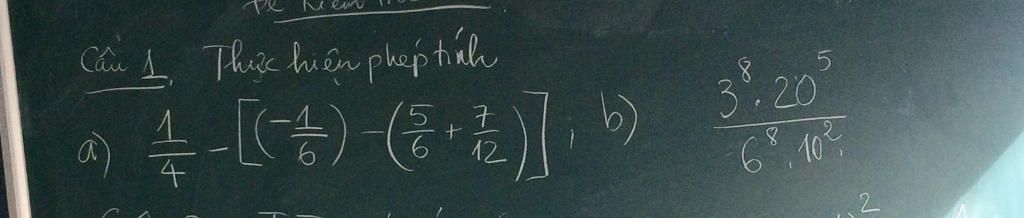 Đề kiểm tra
Câu 1. Thực hiện phép tính
a) 1/4 - [(-1/6) - (5/6 + 7/12)]; b) (3^8 . 20^5)/(6^8 . 10^2)
2